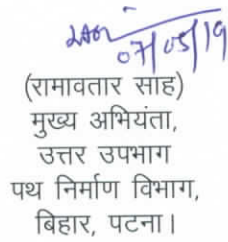 07/05/19
(रामावतार साह)
मुख्य अभियंता,
उत्तर उपभाग
पथ निर्माण विभाग,
बिहार, पटना।